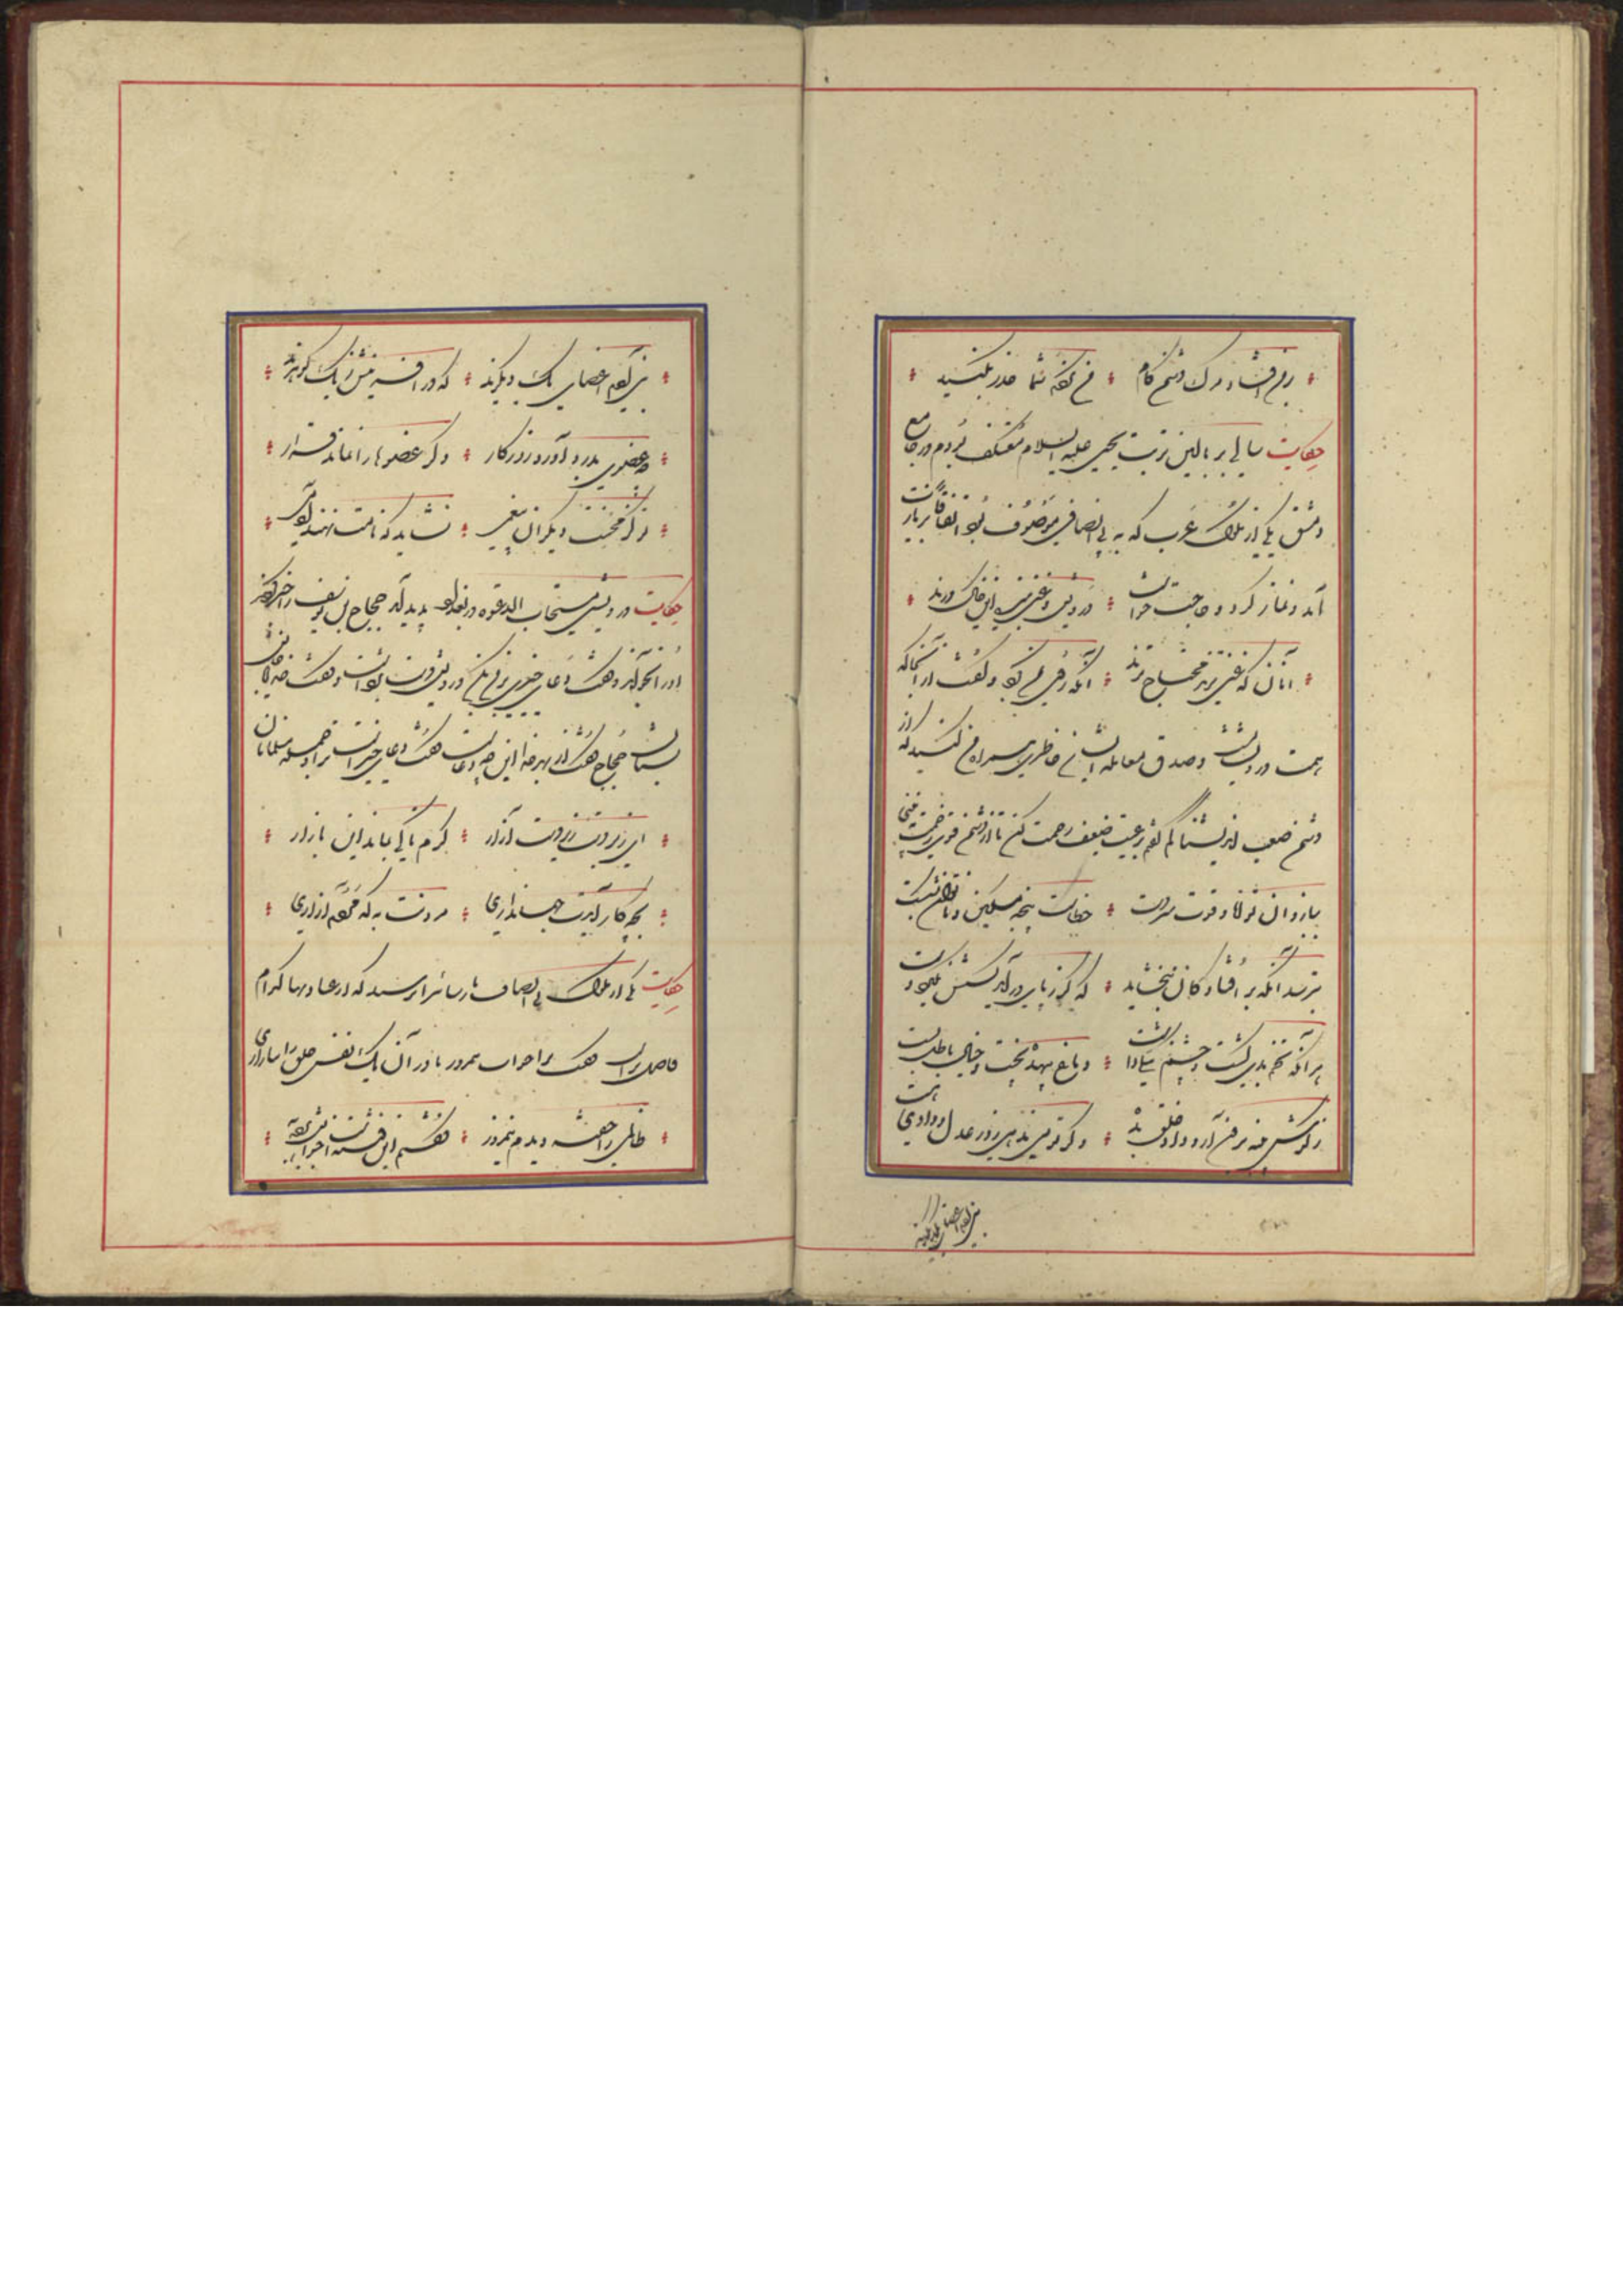 بر من افتاده دشمن کام * من نکردم شما حذر بکنید
حکایت سالی بر بالین تربت یحیی علیه السلام معتکف بودم در جامع
دمشق یکی از ملوک عرب که به بی انصافی موصوف بود اتفاقا بزیارت
آمد و نماز کرد و حاجت خواست * درویش و غنی بنده این خاک درند
آنان که غنی ترند محتاج ترند * آنگه روی بمن کرد و گفت از آنجا که
همت درویشانست و صدق معامله ایشان خاطری همراه من کنید که از
دشمن صعب اندیشناکم گفتم بر رعیت ضعیف رحمت کن تا از دشمن قوی زحمت نبینی
ببازوان توانا و قوت سردست * خطاست پنجه مسکین ناتوان بشکست
نترسد آنکه بر افتادگان نبخشاید * که گر ز پای در آید کسش نگیرد دست
هر آنکه تخم بدی کشت و چشم نیکی داشت * دماغ بیهده پخت و خیال باطل بست
ز گوش پنبه برون آر و داد خلق بده * و گر تو می ندهی داد روز دادی هست
بنی آدم اعضای یکدیگرند
بنی آدم اعضای یک دیگرند * که در آفرینش ز یک گوهرند
چو عضوی بدرد آورد روزگار * دگر عضوها را نماند قرار
تو کز محنت دیگران بی غمی * نشاید که نامت نهند آدمی
حکایت درویشی مستجاب الدعوه در بغداد پدید آمد حجاج یوسف را خبر کردند
او را بخواند و گفت دعای خیری بر من بکن درویش دست برداشت و گفت خدایا جانش
بستان حجاج گفت از بهر خدا این چه دعاست گفت دعای خیرست ترا و جمله مسلمانان
ای زبردست زیردست آزار * گرم تا کی بماند این بازار
بچه کار آیدت جهانداری * مردنت به که مردم آزاری
حکایت یکی از ملوک بی انصاف پارسائی را پرسید که از عبادتها کدام
فاضلتر است گفت ترا خواب نیمروز تا در آن یک نفس خلق را نیازاری
ظالمی را خفته دیدم نیمروز * گفتم این فتنه است خوابش برده به